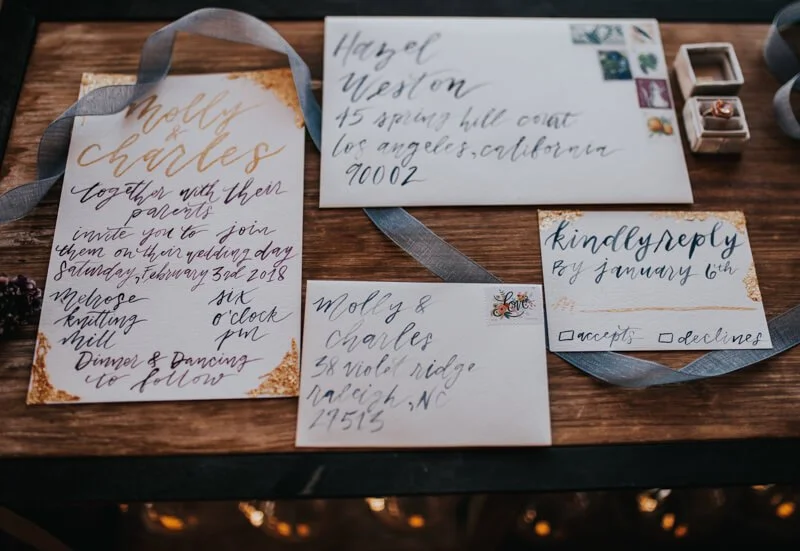 Molly
&
Charles
together with their
parents
invite you to join
them on their wedding day
Saturday, February 3rd 2018
Melrose
knitting
mill
six
o'clock
pm
Dinner & Dancing
to follow
Hazel
Weston
45 spring hill court
los angeles, california
90002
Molly &
Charles
38 violet ridge
raleigh, NC
27513
love
kindly reply
By january 6th
accepts declines